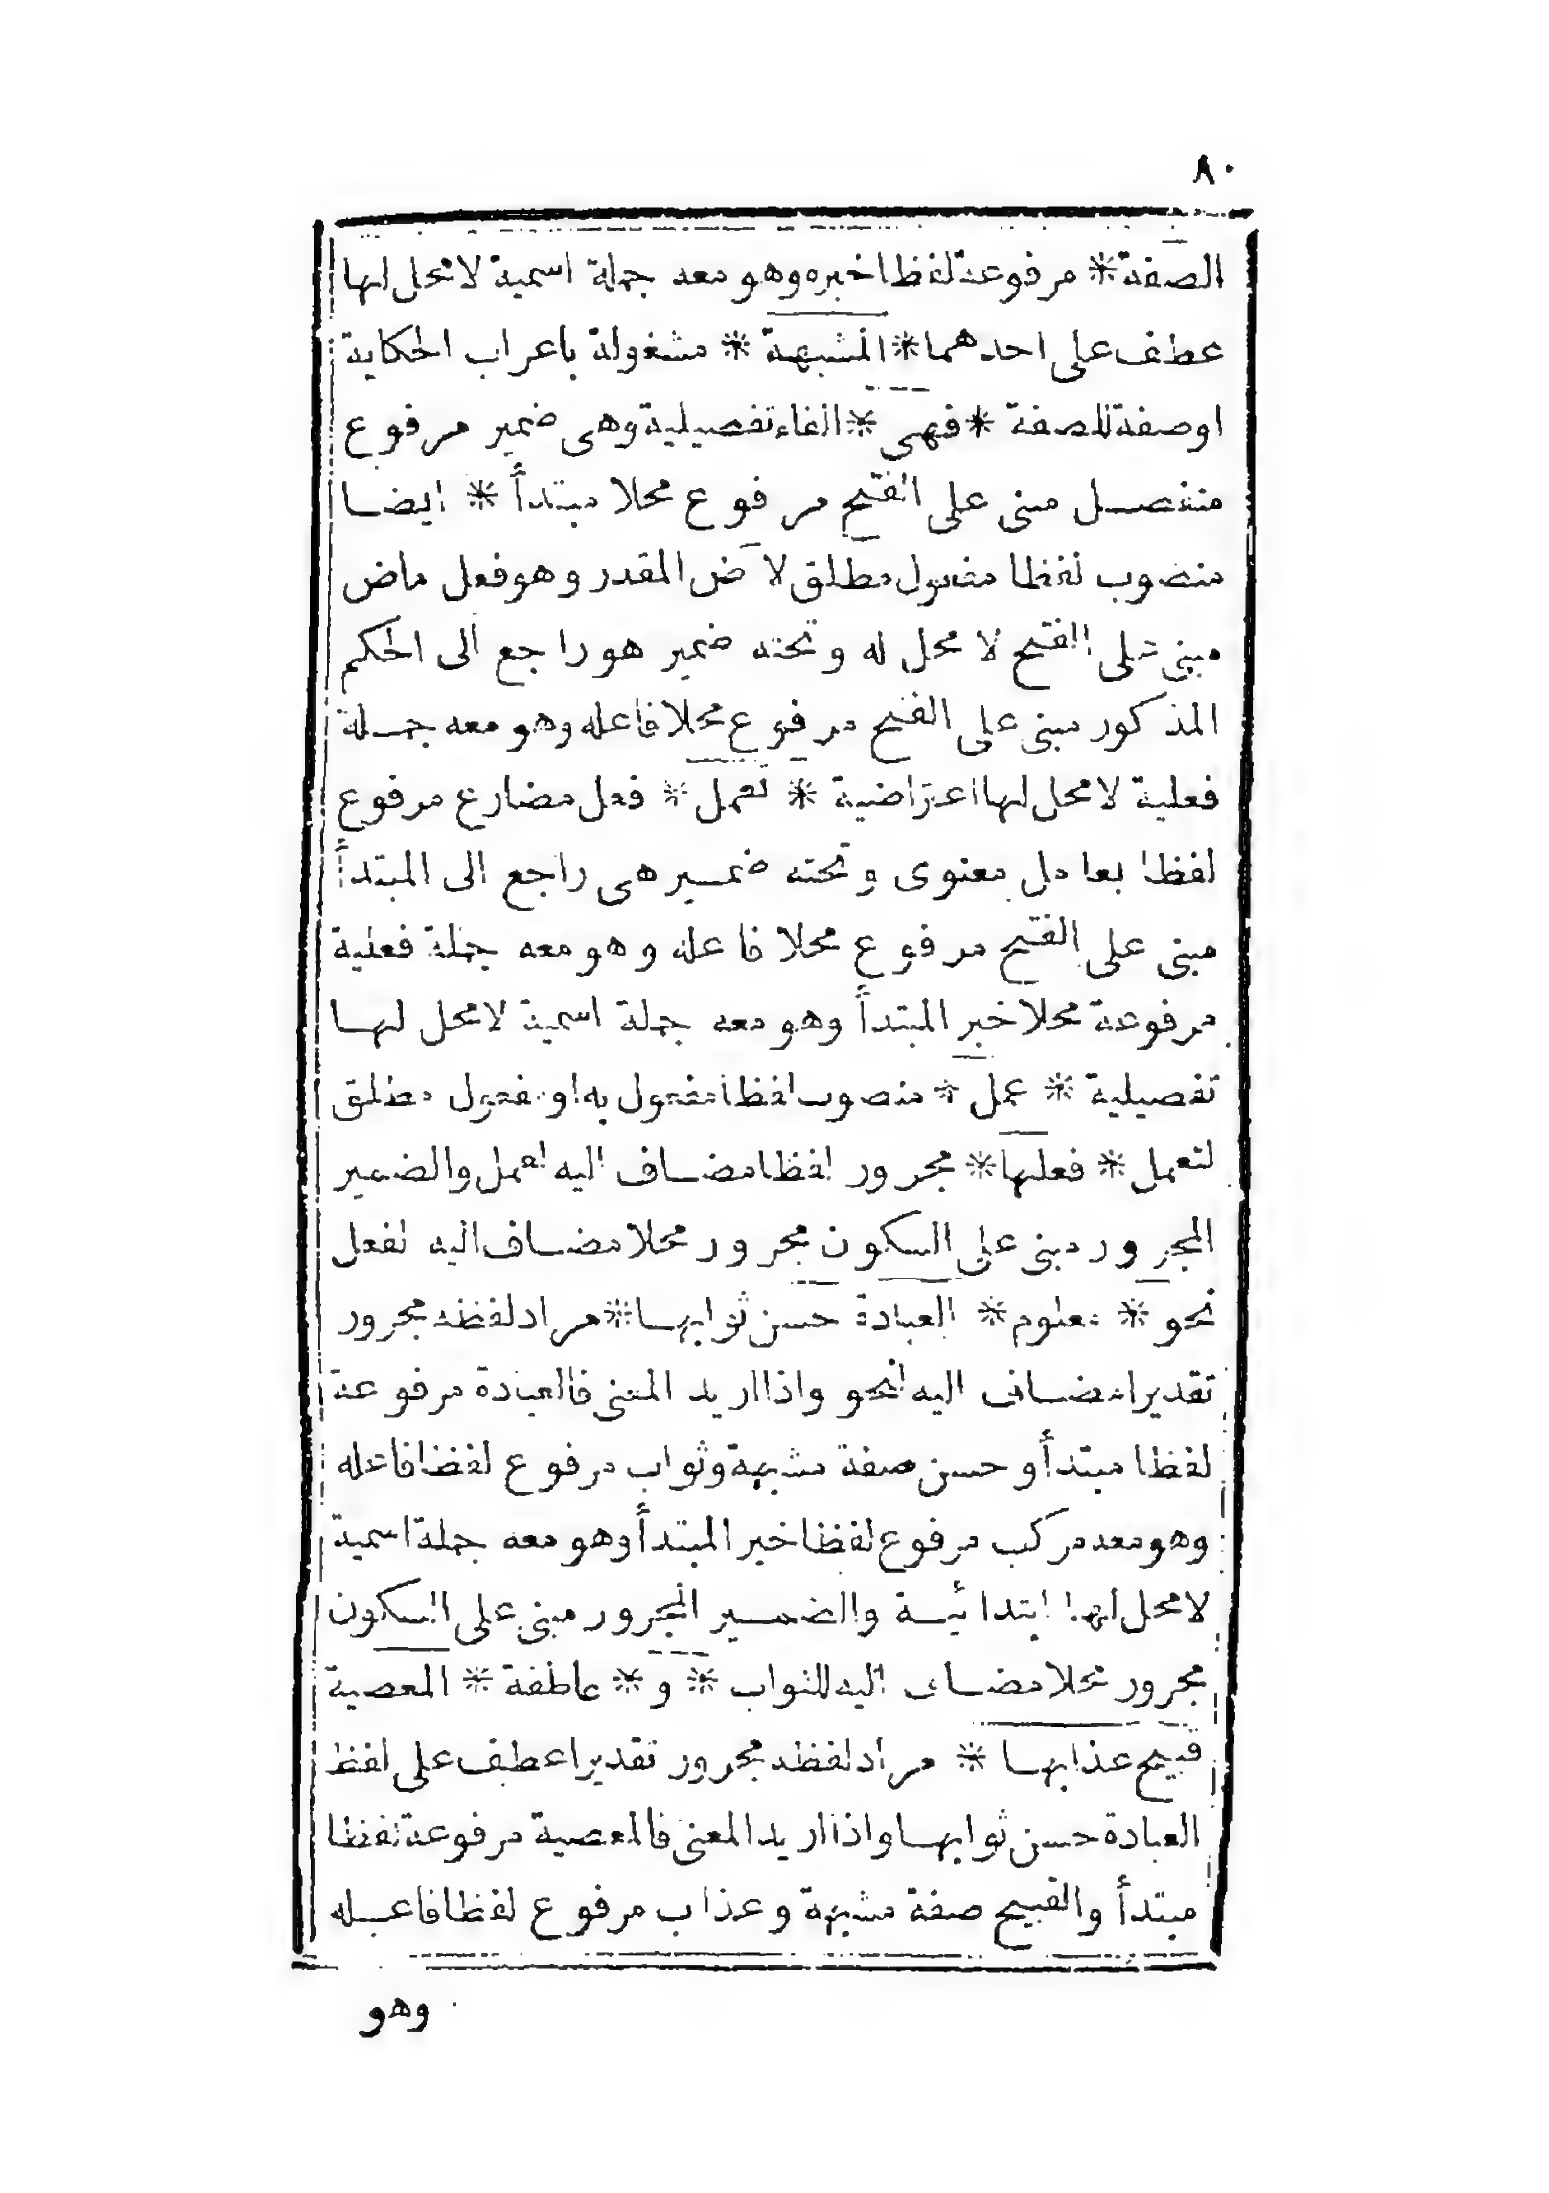 ٨٠
الصفة * مرفوعة لفظا خبره وهو معه جملة اسمية لا محل لها
عطف على احدهما * المشبهة * مشغولة باعراب الحكاية
او صفة للصفة * فهى * الفاء تفصيلية وهى ضمير مرفوع
منفصل مبنى على الفتح مرفوع محلا مبتدأ * ايضا
منصوب لفظا مفعول مطلق لآض المقدر وهو فعل ماض
مبنى على الفتح لا محل له وتحته ضمير هو راجع الى الحكم
المذكور مبنى على الفتح مرفوع محلا فاعله وهو معه جملة
فعلية لا محل لها اعتراضية * تعمل * فعل مضارع مرفوع
لفظا بعامل معنوى وتحته ضمير هى راجع الى المبتدأ
مبنى على الفتح مرفوع محلا فاعله وهو معه جملة فعلية
مرفوعة محلا خبر المبتدأ وهو معه جملة اسمية لا محل لها
تفصيلية * عمل * منصوب لفظا مفعول به او مفعول مطلق
لتعمل * فعلها * مجرور لفظا مضاف اليه لعمل والضمير
المجرور مبنى على السكون مجرور محلا مضاف اليه لفعل
نحو * معلوم * العبادة حسن ثوابها * مراد لفظه مجرور
تقديرا مضاف اليه لنحو واذا اريد المعنى فالعبادة مرفوعة
لفظا مبتدأ وحسن صفة مشبهة وثواب مرفوع لفظا فاعله
وهو معه مركب مرفوع لفظا خبر المبتدأ وهو معه جملة اسمية
لا محل لها ابتدائية والضمير المجرور مبنى على السكون
مجرور محلا مضاف اليه للثواب * و * عاطفة * المعصية
قبيح عذابها * مراد لفظه مجرور تقديرا عطف على لفظ
العبادة حسن ثوابها واذا اريد المعنى فالمعصية مرفوعة لفظا
مبتدأ والقبيح صفة مشبهة وعذاب مرفوع لفظا فاعله
وهو